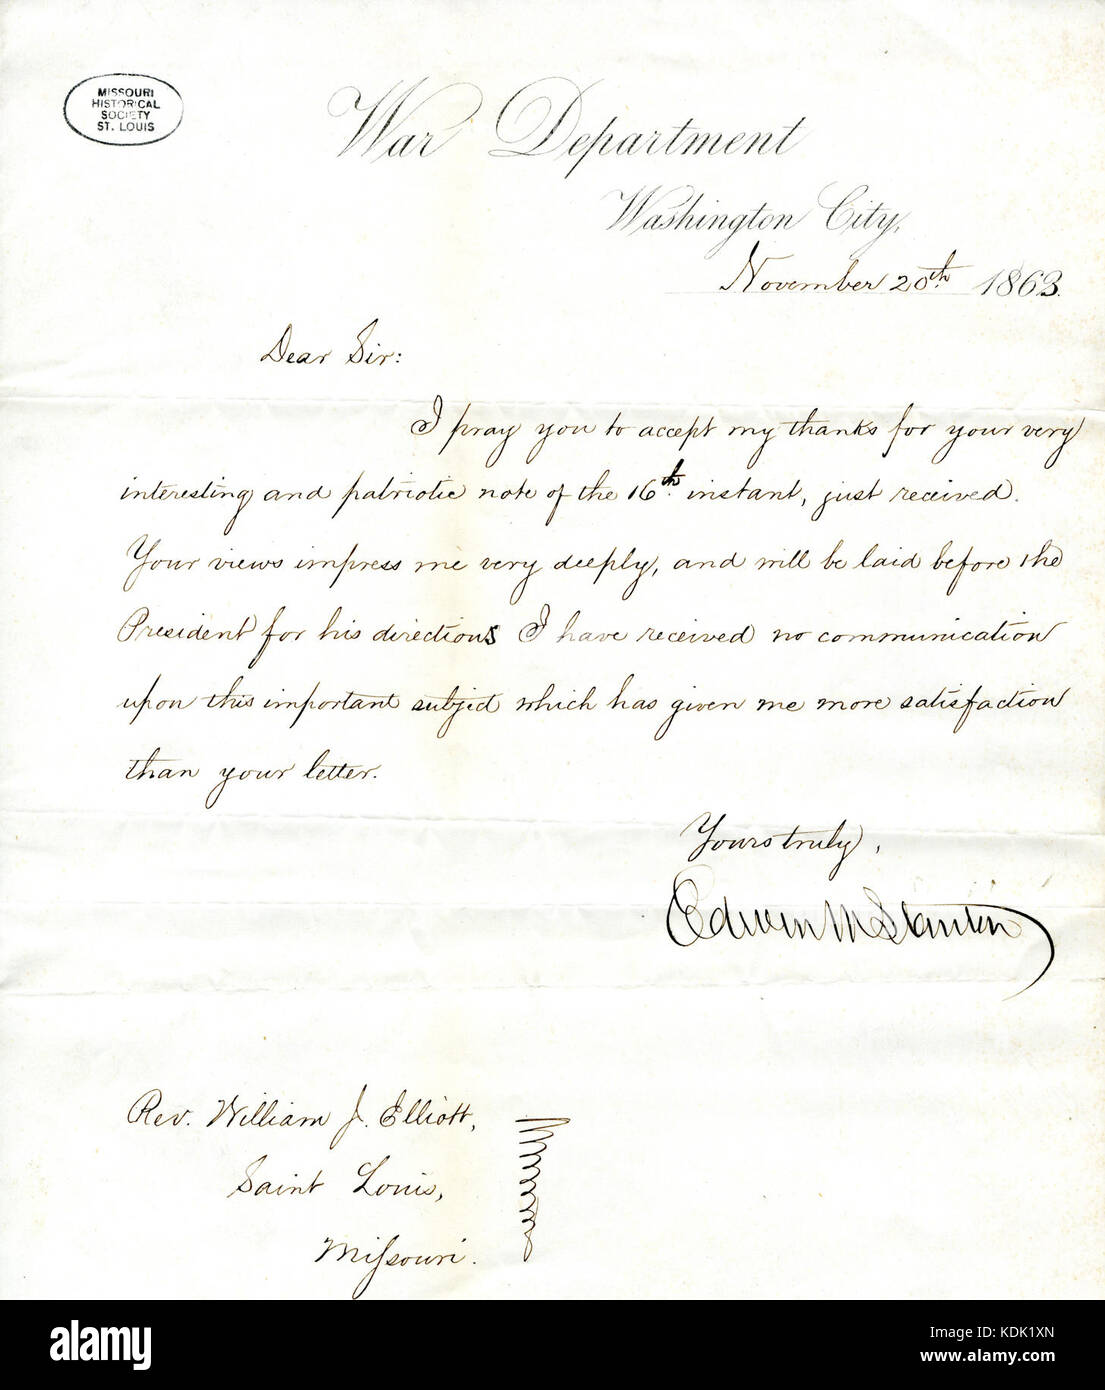 MISSOURI
HISTORICAL
SOCIETY
ST. LOUIS
War Department
Washington City,
November 20th. 1863.
Dear Sir:
I pray you to accept my thanks for your very
interesting and patriotic note of the 16th. instant, just received.
Your views impress me very deeply, and will be laid before the
President for his directions I have received no communication
upon this important subject which has given me more satisfaction
than your letter.
Yours truly,
Edwin M Stanton
Rev. William J. Elliott,
Saint Louis,
Missouri.
alamy
Image ID: KDK1XN
www.alamy.com